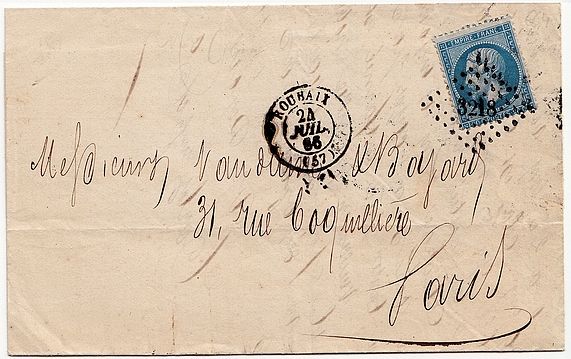 EMPIRE FRANC
3218
ROUBAIX
24
JUIL.
66
(57)
Messieurs & Bayard
31, rue Coquillière
Paris